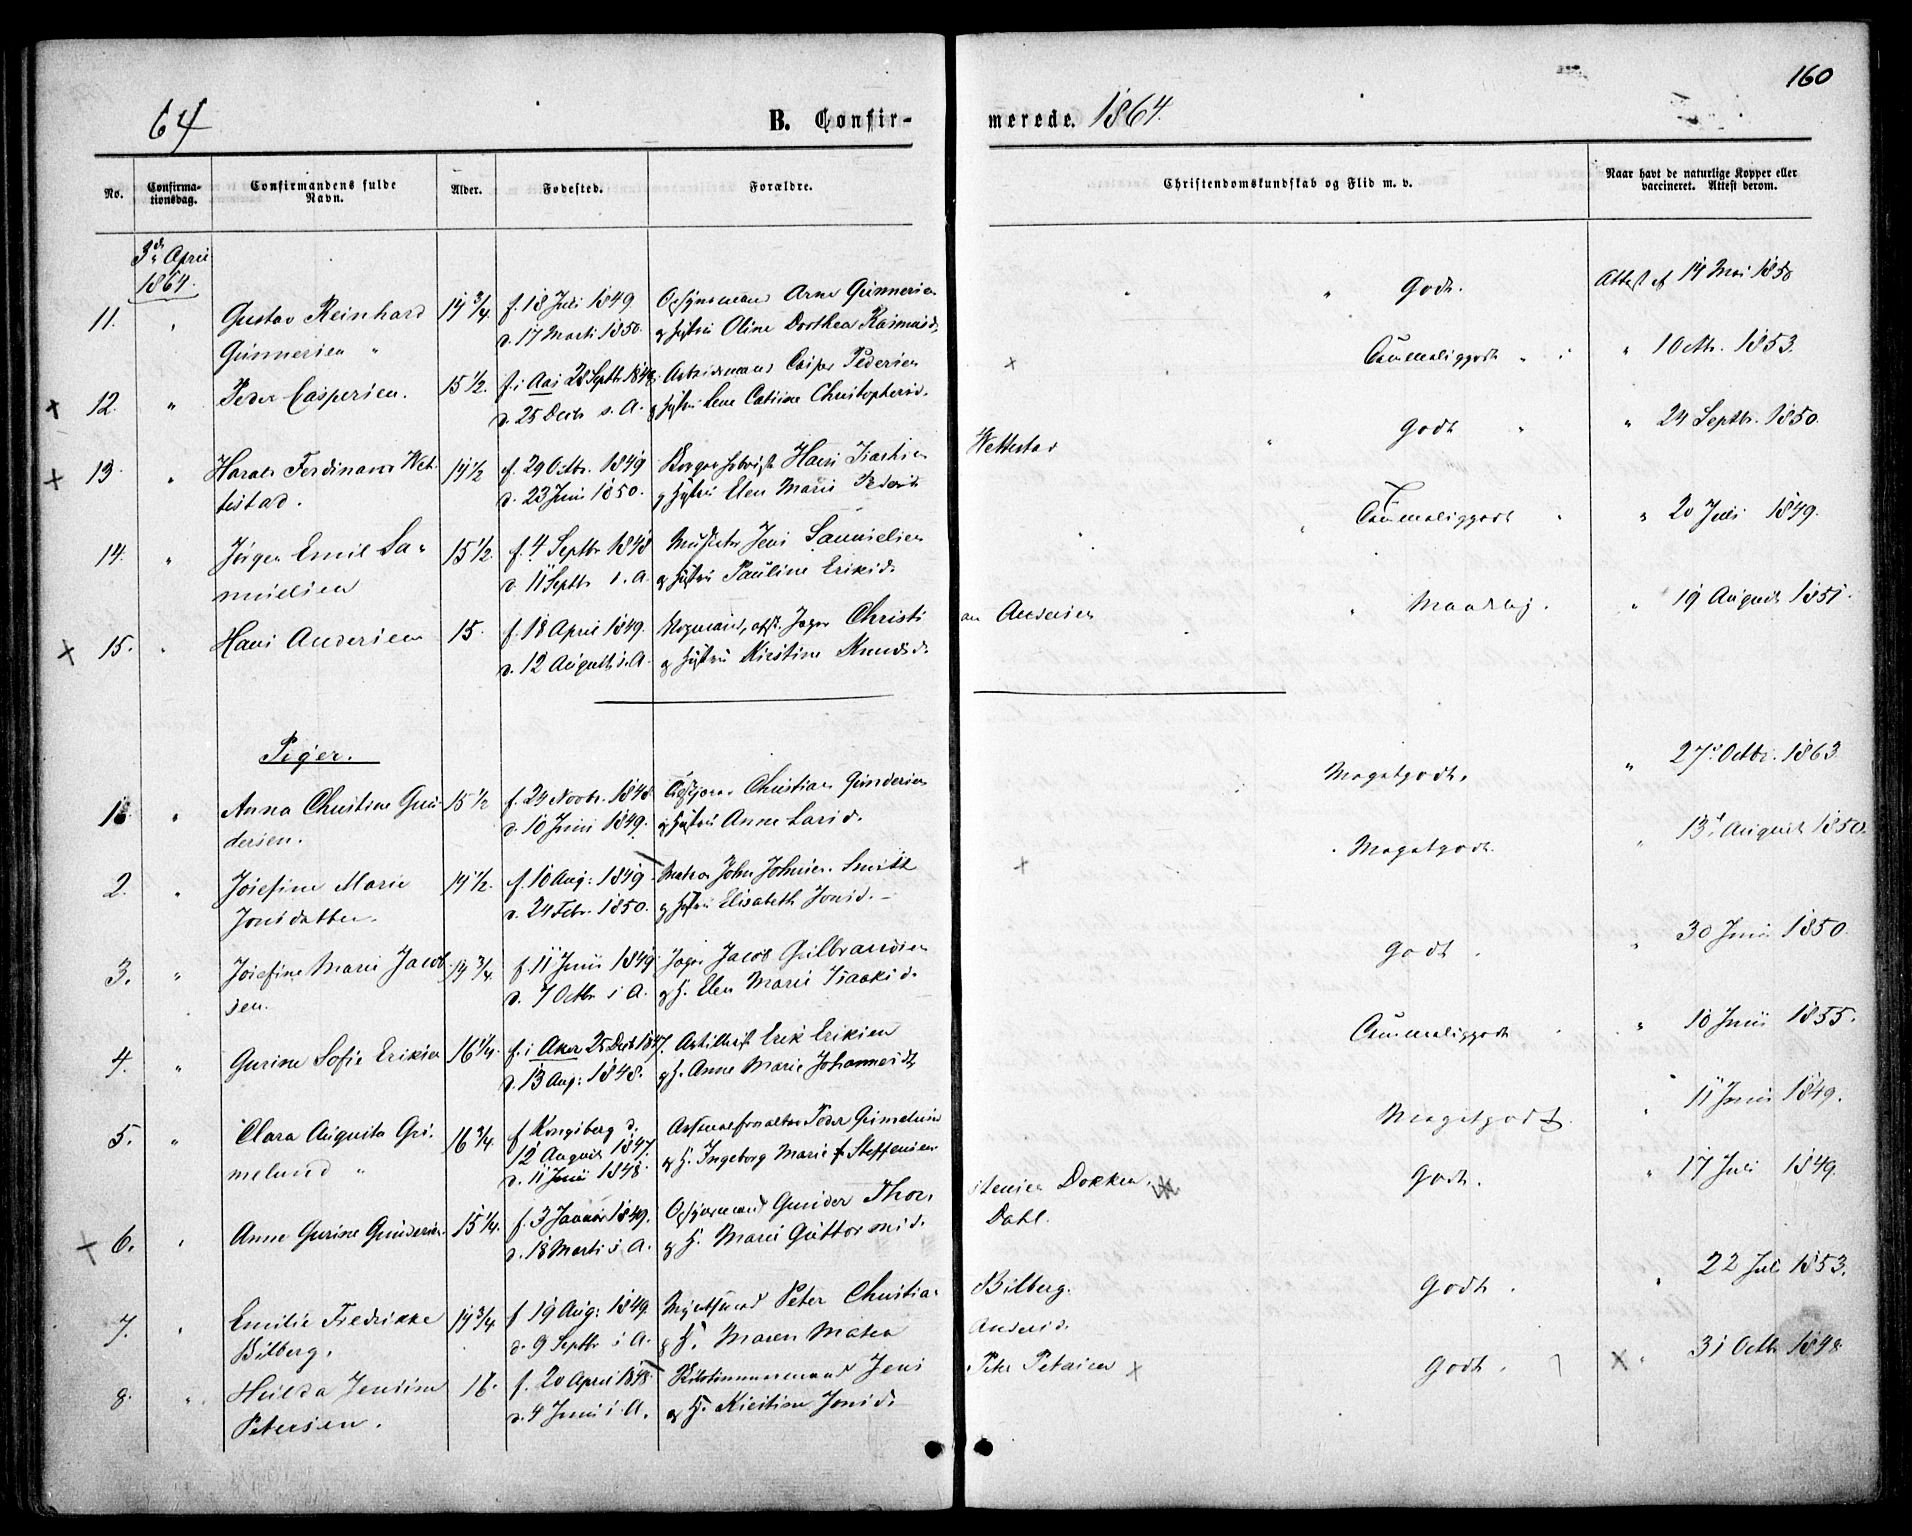 160
64 B. Confir- merede. 1864.
No. Confirma-tionsdag. Confirmandens fulde Navn. Alder. Fødested. Forældre. Christendomskundskab og Flid m. v. Naar havt de naturlige Kopper eller vaccineret. Attest derom.
3d. April
1864.
11. " Gustav Reinhard 14 3/4 f. 18 Juli 1849 Opsynsmand Arne Gunnersen " " Godt. Attest af 14 Mai 1850
Gunnersen " d. 17 Marts 1850. og Hustru Oline Dorthea Rasmusd.
x 12. " Peder Caspersen. 15 1/2. f. i Aas 28 Septb 1848 Arbeidsmand Casper Pedersen x Taammeliggodt " " 1 Octbr. 1853.
d. 25 Decb s. A. og Hustru Lene Catrine Christophersd.
x 13. " Harald Ferdinand Wet- 14 1/2 f. 29 Octbr. 1849 Hans Isachsen Wettestad " Godt " " 24 Septbr. 1850.
testad. d. 23 Juni 1850. og Hustru Elen Marie Pedersd
14. " Jørgen Emil Sa- 15 1/2. f. 4 Septbr 1848 Jens Samuelsen " Taammeliggodt " " 20 Juli 1849.
muelsen d. 11 Septb s. A. og Hustru Pauline Eriksd.
x 15. " Hans Andersen 15. f. 18 April 1849. Christi an Andersen " Maadelig. " 19 August 1851.
d. 12 August s. A. og Hustru Kirstine Knudsd.
Piger.
1. " Anna Christine Gun- 15 1/2 f. 24 Novbr. 1848 Christian Gundersen Megetgodt. " 27. Octbr. 1863
dersen. d. 10 Juni 1849. og Hustru Anne Larsd.
2. " Josefine Marie 14 1/2. f. 10 Aug: 1849 Matros John Johnsen Smith x Megetgodt. " 13. August 1850.
Jonsdatter. d. 24 Febr. 1850. og Hustru Elisabeth Jonsd.
3. " Josefine Marie Jacob- 14 3/4. f. 11 Juni 1849 Jacob Gulbrandsen Godt. " 30 Juni 1850.
sen. d. 7 Octbr s. A. og H. Elen Marie Isaaksd.
4. " Gurine Sofie Eriksen 16 1/4. f. i Aker 25 Decb 1847. Erik Eriksen Taammeliggodt " " 10 Juni 1855.
d. 13 Aug: 1848. og H. Anne Marie Johannesdt
5. " Clara Augusta Gri- 16 3/4. f. Kongsberg d. Arsenalforvalter Peder Grimelund Megetgodt. " 11 Juni 1849.
melund " 12 August 1847. og H. Ingeborg Marie f. Steffensen
d. 11 Juni 1848.
x 6. " Anne Gurine Gundersen 15 1/4. f. 3 Januar 1849. Opsynsmand Gunder Thor- stensen Dokken. Godt. " 17 Juli 1849.
d. 18 Marts s. A. og H. Marie Guttormsd. Dahl.
7. " Emilie Fredrikke 14 3/4 f. 19 Aug: 1849. Peter Christian Bilberg. Godt. " 22 Juli 1853.
Bilberg. d. 9 Septbr s. A. og H. Maren Mathea Andersd.
8. " Hulda Jensine 16. f. 20 April 1848. Jens Petr Petersen x Godt. x " 31 Octbr 1848.
Petersen. d. 4 Juni s. A. og H. Kirstine Jonsd.